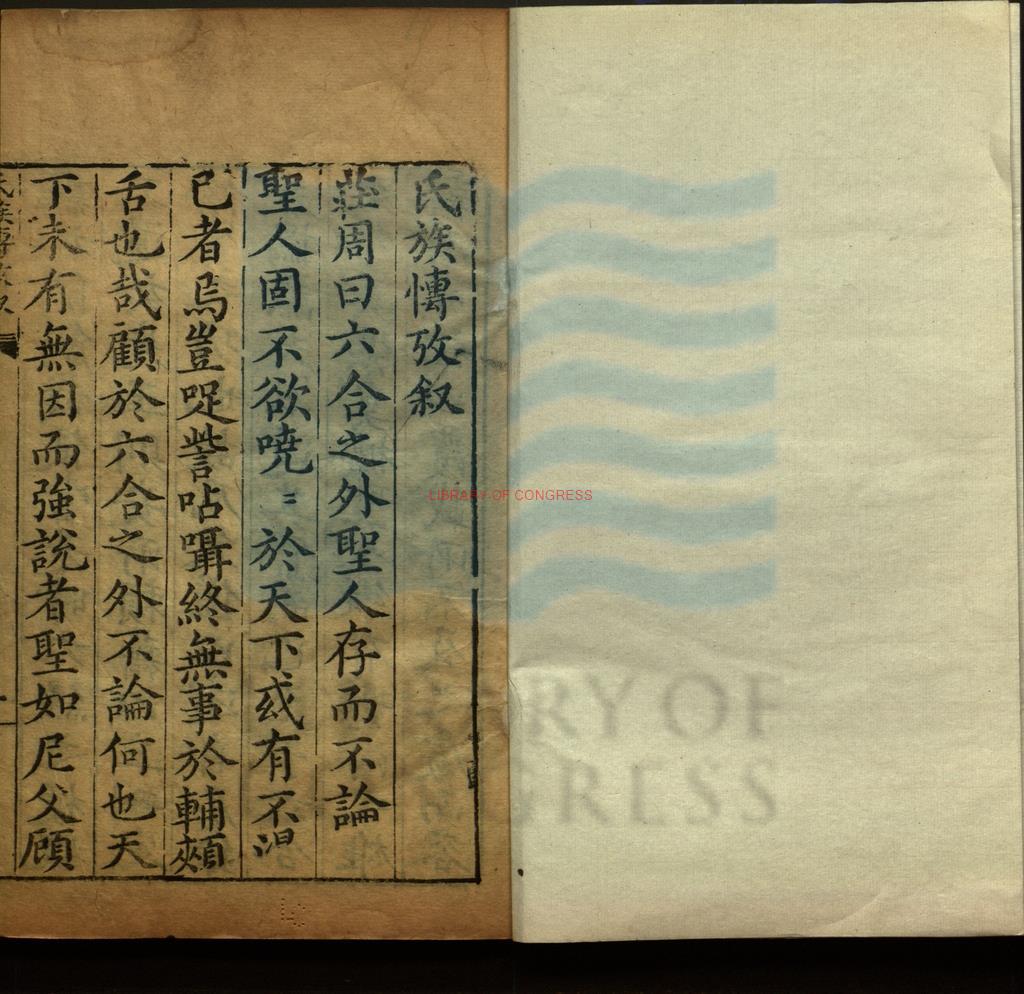 氏族慱攷叙
莊周曰六合之外聖人存而不論
聖人固不欲嘵〻於天下或有不淂
已者焉豈哫訾呫囁終無事於輔頰
舌也哉顧於六合之外不論何也天
下未有無因而強說者聖如尼父顧
LIBRARY OF CONGRESS
RY OF
GRESS